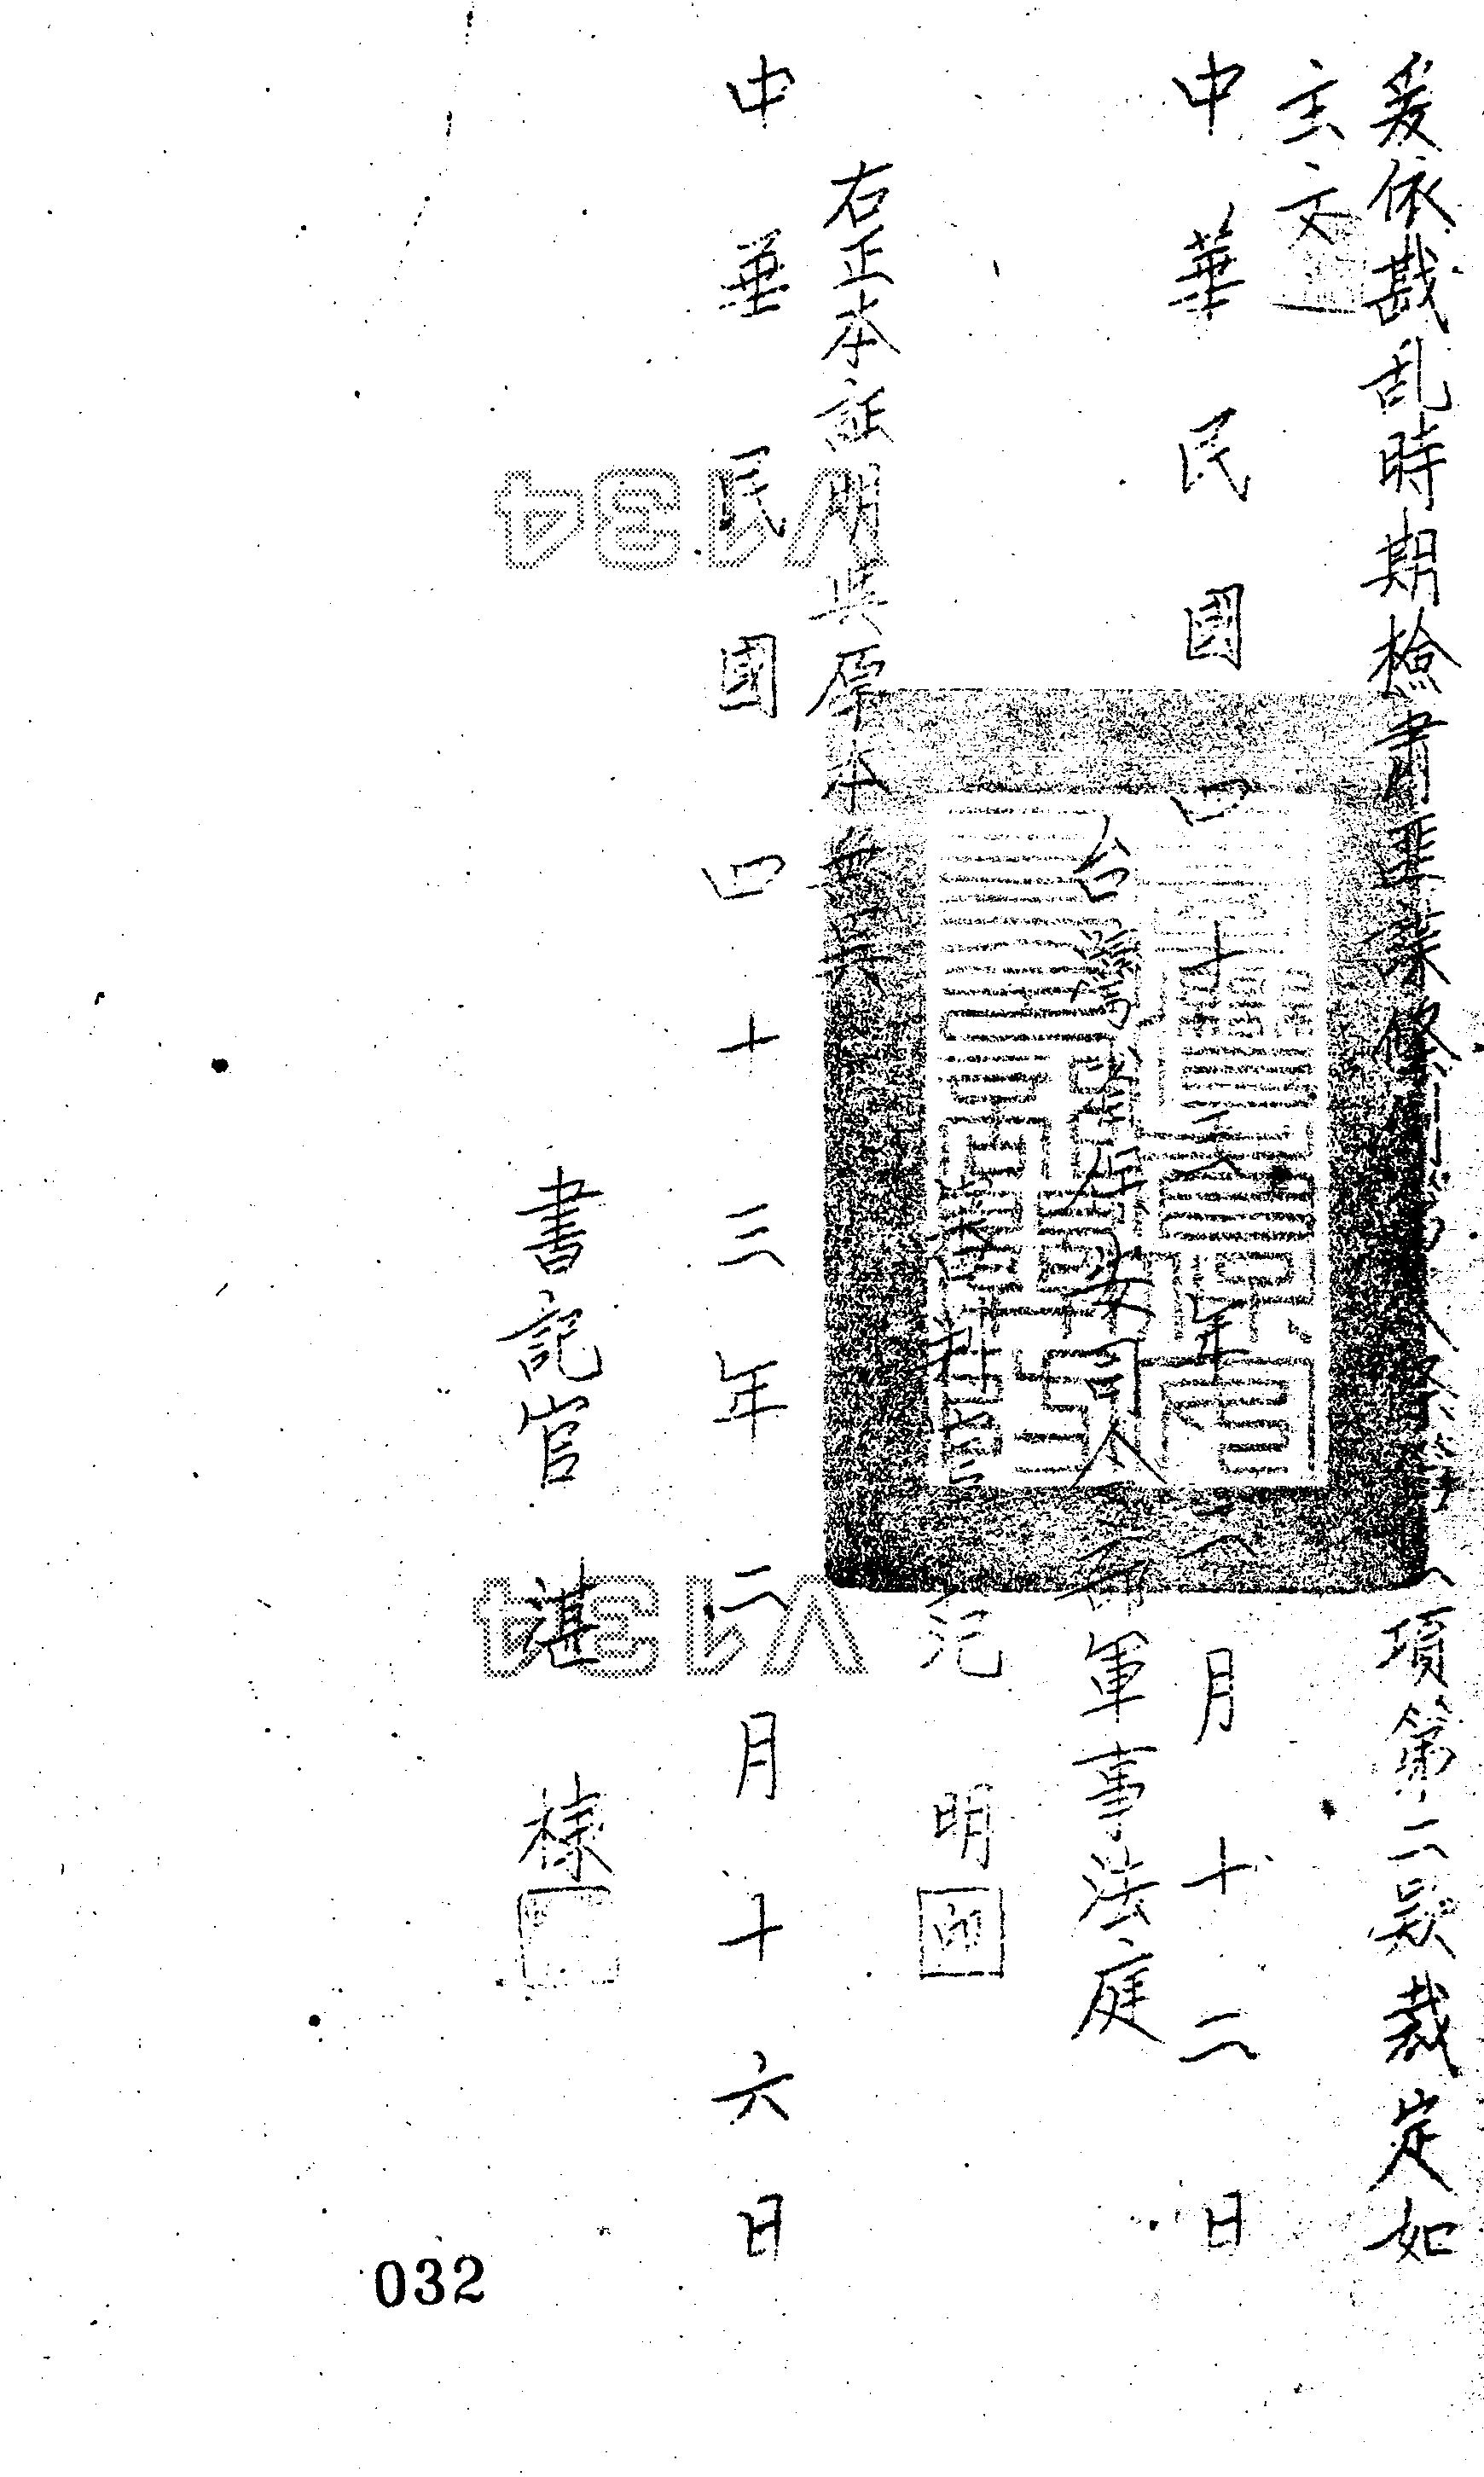 爰依戡乱時期檢肅匪諜條例第八條第一項第二款裁定如
主文
中華民國四十三年二月十二日
台灣省保安司令部軍事法庭
審判官 范明 印
右正本証明與原本無異
中華民國四十三年二月十六日
書記官 諶樣
V134
V134
032